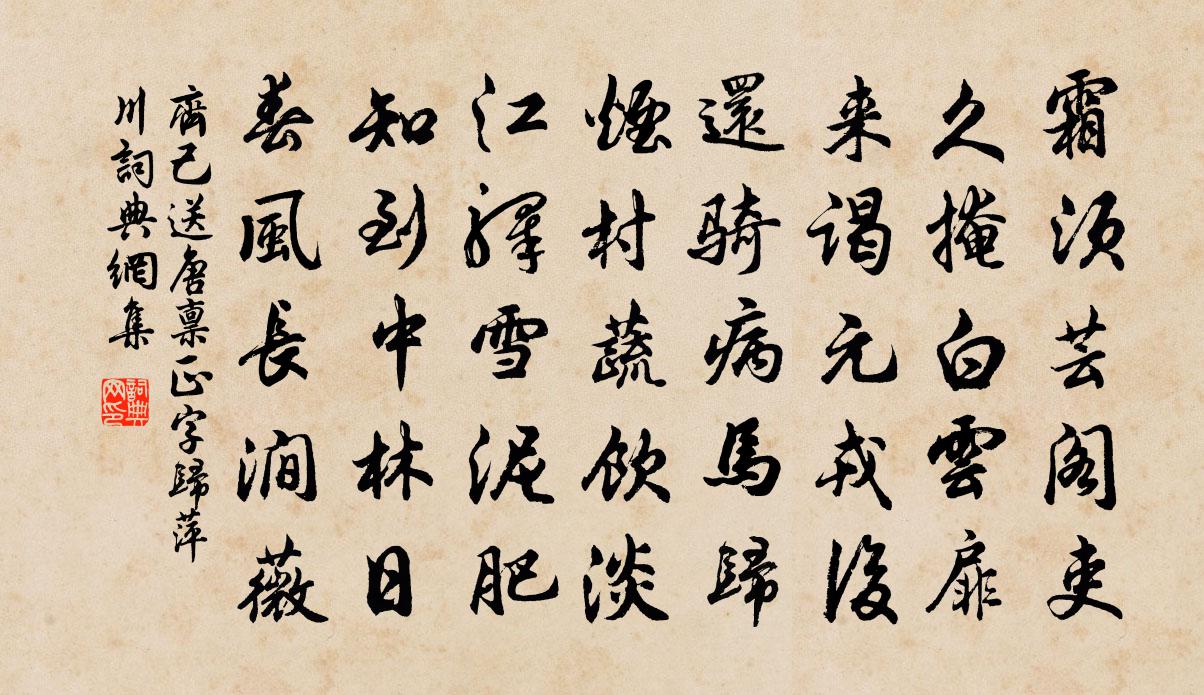 霜須芸閣吏
久掩白雲扉
来謁元戎後
還騎病馬歸
煙村蔬飲淡
江驛雪泥肥
知到中林日
春風長澗薇
齊己送唐稟正字歸萍
川詞典網集
詞典
网印